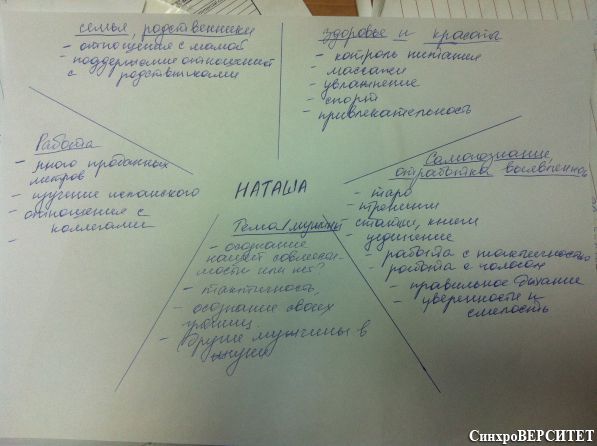 семья, родственники
- отношения с мамой
- поддержание отношений
с родственниками
Здоровье и красота
- контроль питания
- массажи
- увлажнение
- спорт
- привлекательность
Работа
- много проданных
метров
- изучение испанского
- отношения с
коллегами
-
НАТАША
Самопознание,
отработка
- таро
- тренинги
статьи, книги
- уединение
- работа с тактичностью
- работа с голосом
- правильное дыхание
- уверенность и
смелость
Тема
- осознание
нашей совмести-
мости или нет?
- тактичность
- осознание своих
границ
- Другие мужчины в
СинхроВЕРСИТЕТ